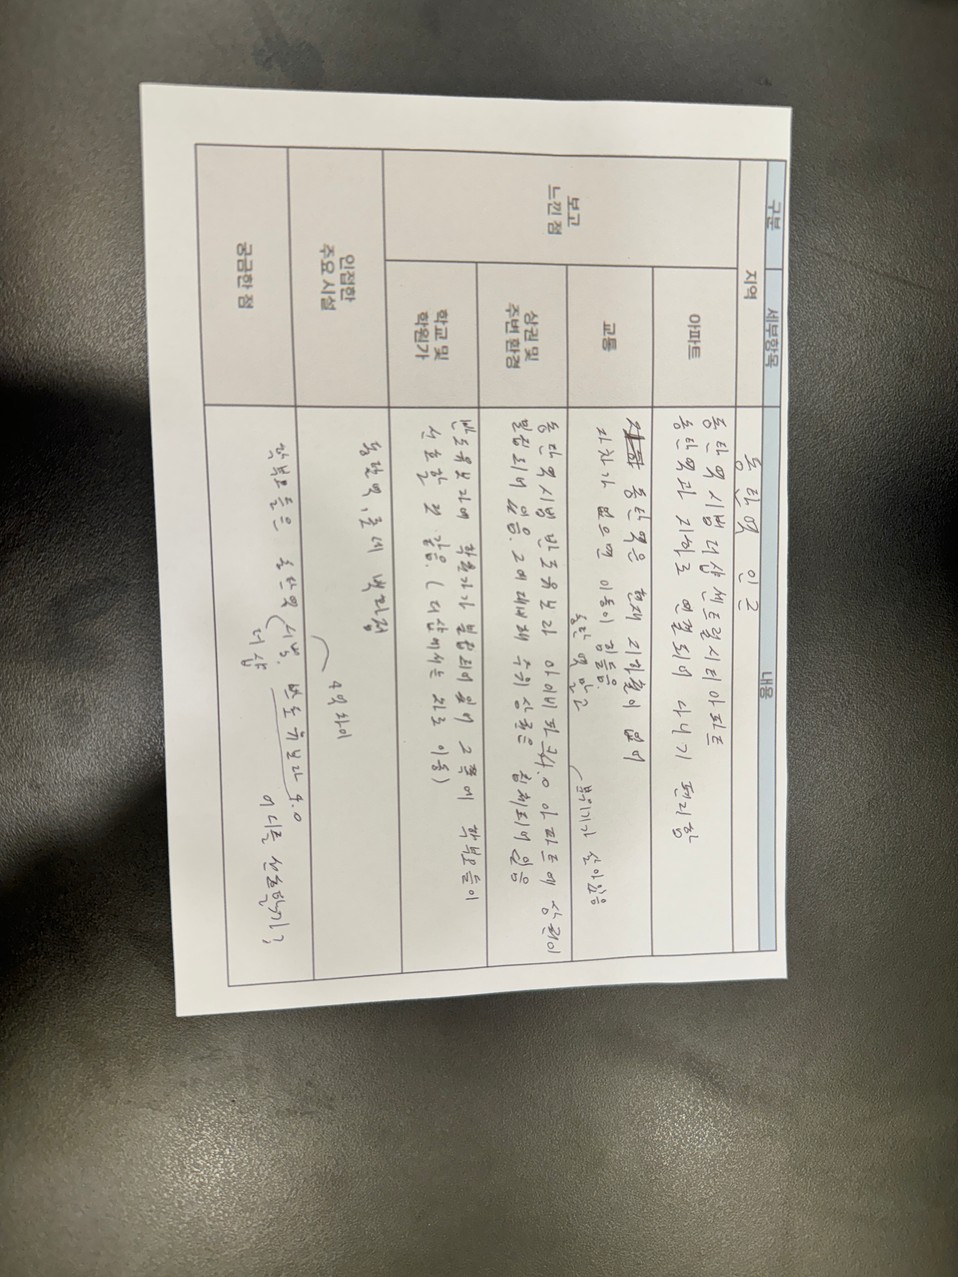 구분 세부항목 내용
지역 동탄역 인근
보고
느낀 점
아파트
동탄역 시범 더샵 센트럴시티 아파트
동탄역과 지하로 연결되어 다니기 편리함
교통
동탄역은 현재 지하철이 없어
자차가 없으면 이동이 힘듦.
상권 및
주변 환경
동탄역 인근
분위기가 살아있음
동탄역 시범 반도유보라 아이비파크4.0 아파트에 상권이
밀집되어 있음. 그에 대비해 수위 상권은 침체되어 있음
학교 및
학원가
반도유보라에 학원가가 밀집되어 있어 그 쪽에 학부모들이
선호할 것 같음. (더샵에서는 차로 이동)
인접한
주요 시설
동탄역, 롯데백화점
궁금한 점
4억 차이
학부모들은 동탄역 시범 반도유보라 4.0
더샵
어디를 선호할지?